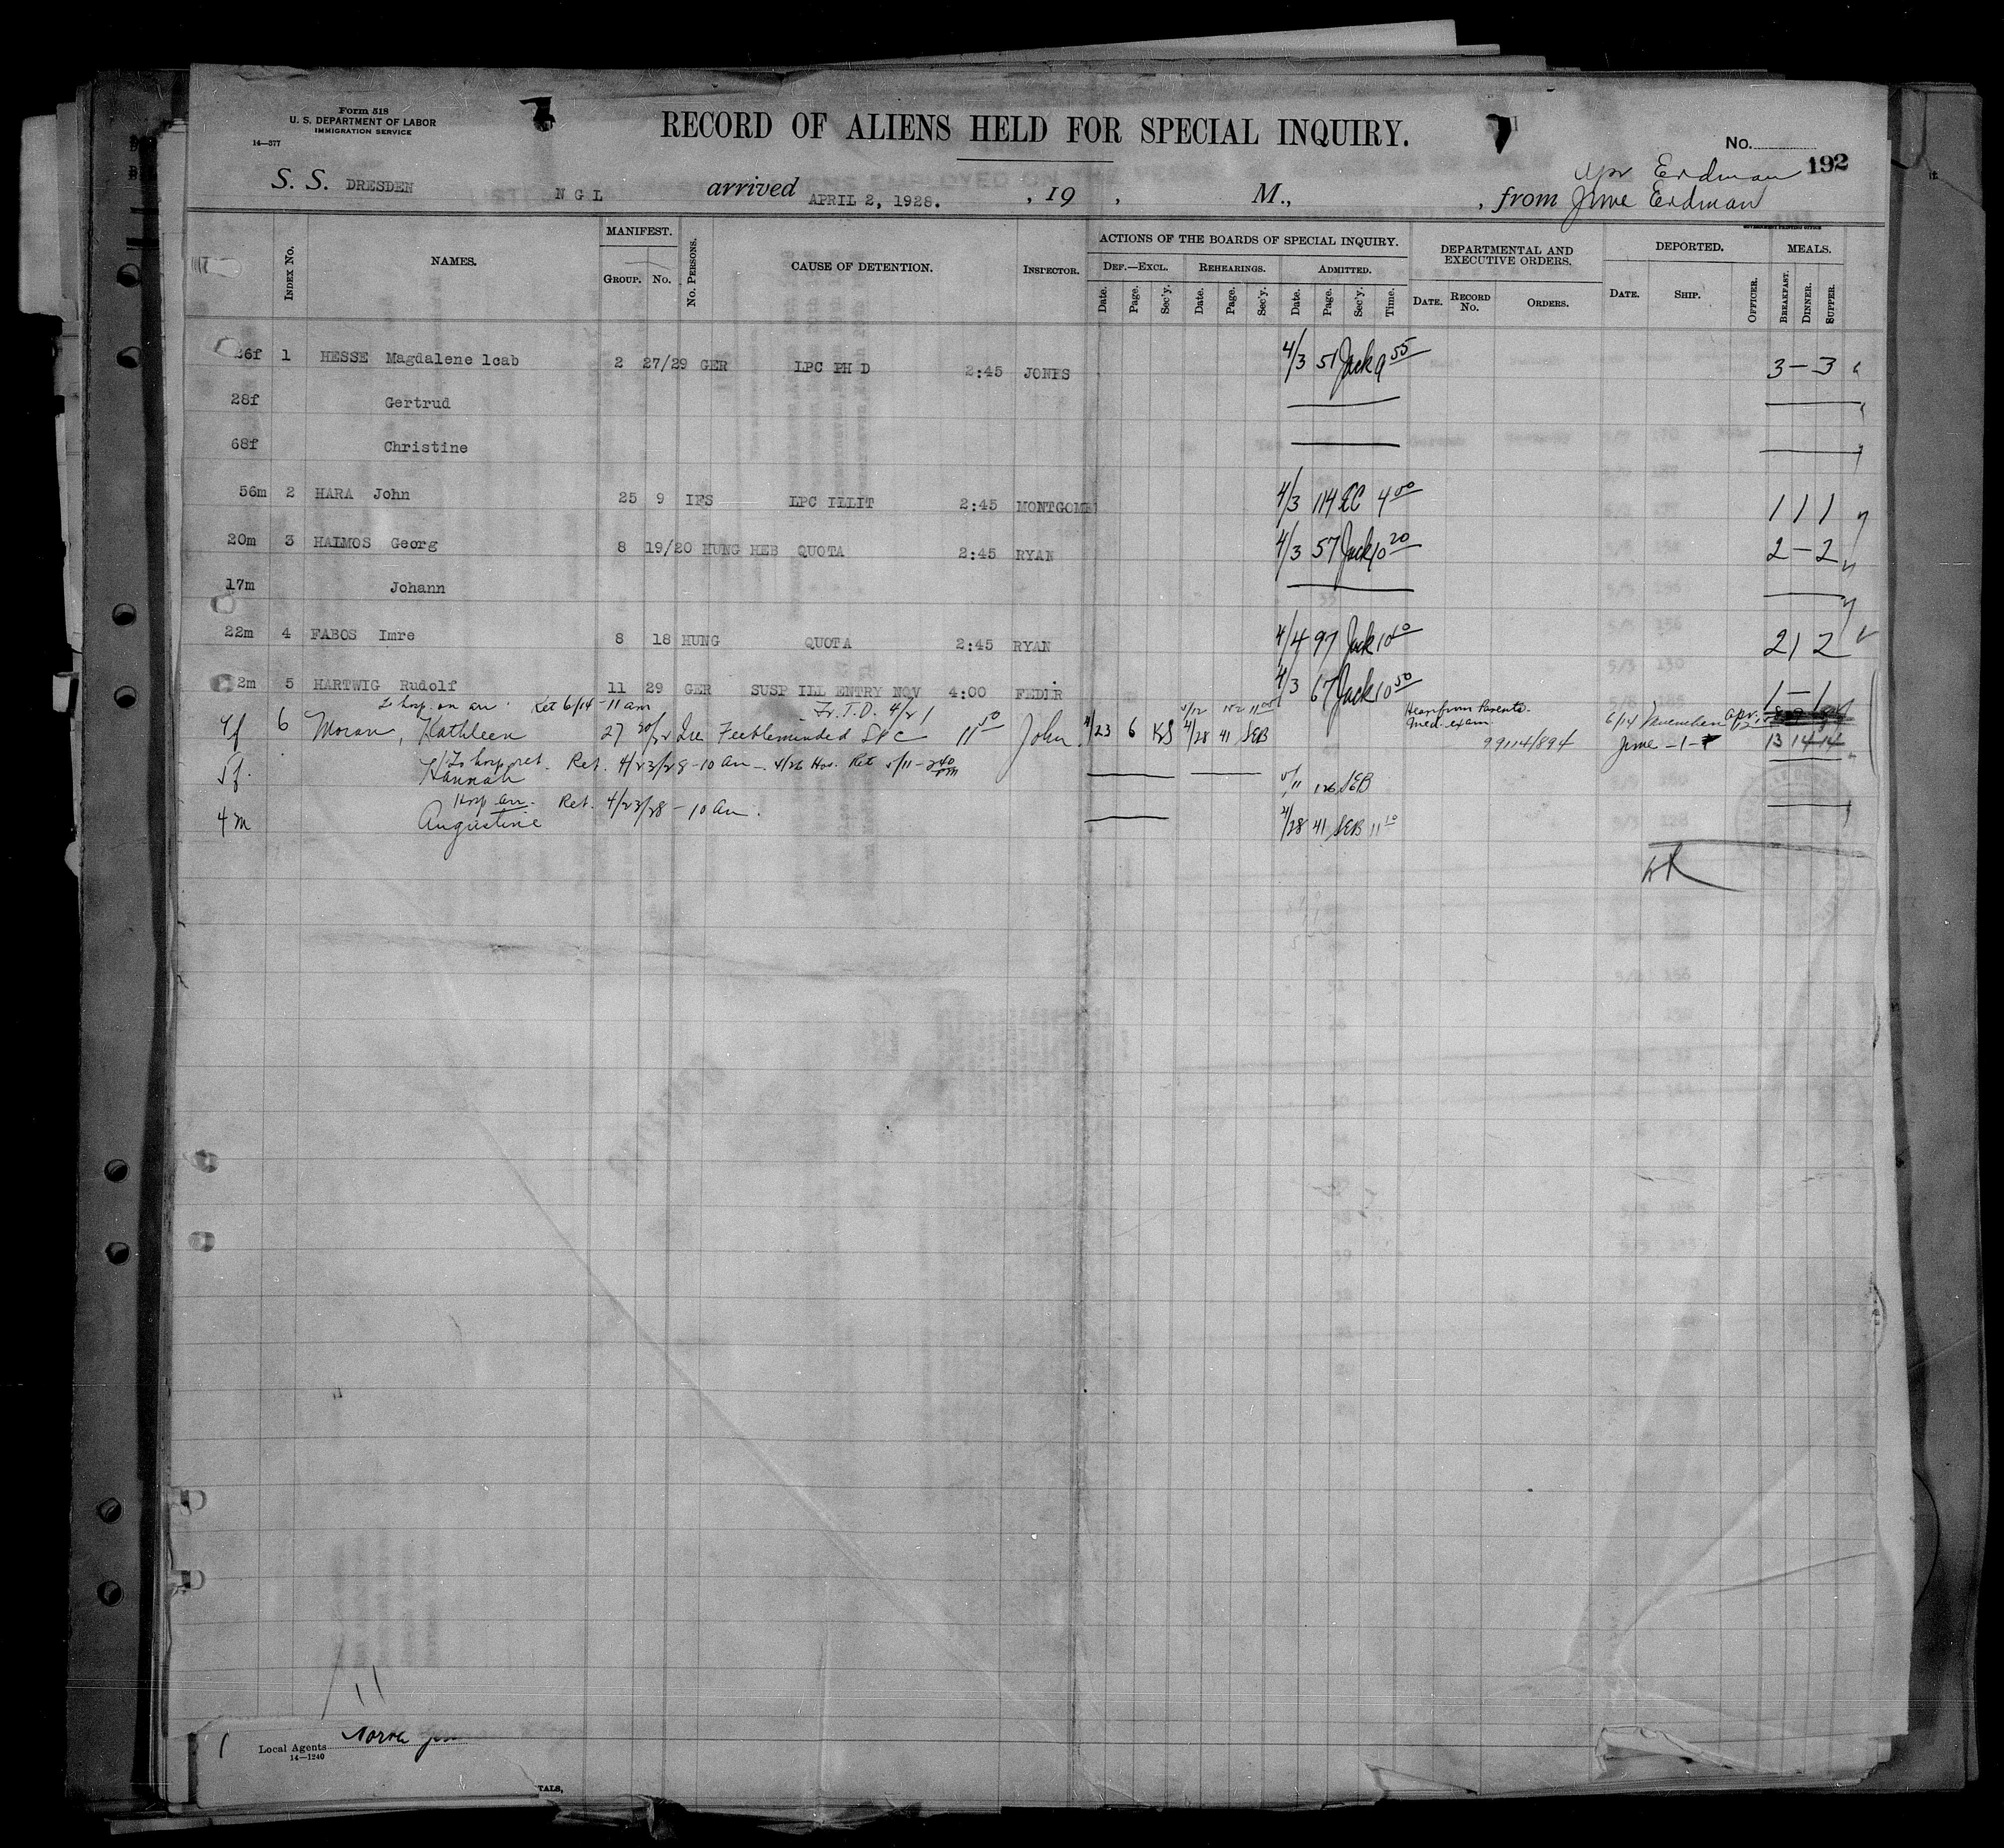 Form 518
U. S. DEPARTMENT OF LABOR
IMMIGRATION SERVICE
14—377
RECORD OF ALIENS HELD FOR SPECIAL INQUIRY.
No.
192
Erdman
S. S. DRESDEN N G L arrived APRIL 2, 1928. , 19 , M., , from June Erdman
Index No. NAMES. MANIFEST. Group. No. No. Persons. CAUSE OF DETENTION. Inspector. ACTIONS OF THE BOARDS OF SPECIAL INQUIRY. DEPARTMENTAL AND EXECUTIVE ORDERS. DEPORTED. MEALS.
Def.—Excl. Rehearings. Admitted.
Date. Page. Sec'y. Date. Page. Sec'y. Date. Page. Sec'y. Time. Date. Record No. Orders. Date. Ship. Officer. Breakfast. Dinner. Supper.
26f 1 HESSE Magdalene 1cab 2 27/29 GER LPC PH D 2:45 JONES 4/3 51 Jack 9 55 3 — 3
28f Gertrud
68f Christine
56m 2 HARA John 25 9 IFS LPC ILLIT 2:45 MONTGOME 4/3 114 EC 4 00 1 1 1
20m 3 HALMOS Georg 8 19/20 HUNG HEB QUOTA 2:45 RYAN 4/3 57 Jack 10 20 2 — 2
17m Johann
22m 4 FABOS Imre 8 18 HUNG QUOTA 2:45 RYAN 4/4 97 Jack 10 40 2 1 2
2m 5 HARTWIG Rudolf 11 29 GER SUSP ILL ENTRY NOV 4:00 FEDER 4/3 67 Jack 10 50 1 — 1
To hosp. on arr. Ret 6/14 - 11 am Tr. T.D. 4/21 Hear from Parents.
Med. exam.
6 Moran, Kathleen 27 Ire Feebleminded LPC 11 50 John 4/23 6 KS 4/28 41 SEB 99114/894 6/14 June 13 14 14
To hosp. ret. Ret. 4/23/28 - 10 Am — 4/26 Hos. Ret 5/11 - 2 40 PM
5f. Hannah 5/11 126 SEB
Hosp arr. Ret. 4/23/28 - 10 am.
4m Augustine 4/28 41 SEB 11 10
Local Agents North
14—1240
TALS,